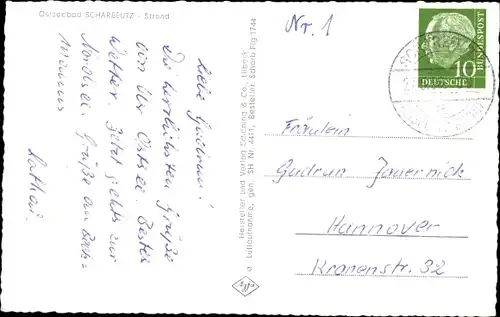 Ostseebad SCHARBEUTZ - Strand
Nr. 1
Liebe Gudrun!
Die herzlichsten Grüße
von der Ostsee. Bestes
Wetter. Jetzt gehts zur
Nordsee. Grüße an Beck=
manns
Hersteller und Verlag Schöning & Co., Lübeck
Luftaufnahme, gen. SH Nr. 4451, Bestellnr. Scharb Flg 1744
DEUTSCHE
BUNDESPOST
10
Fräulein
Gudrun Jauernick
Hannover
Kronenstr. 32